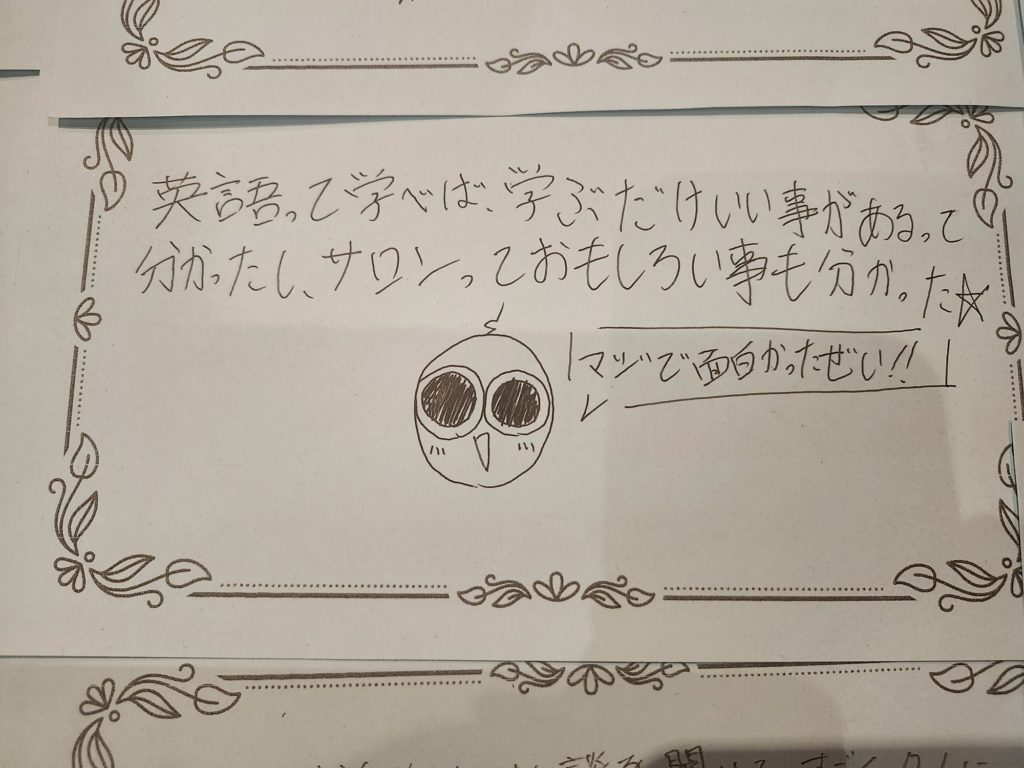 英語って学べば、学ぶだけいい事があるって
分かったし、サロンっておもしろい事も分かった☆
マジで面白かったぜい!!